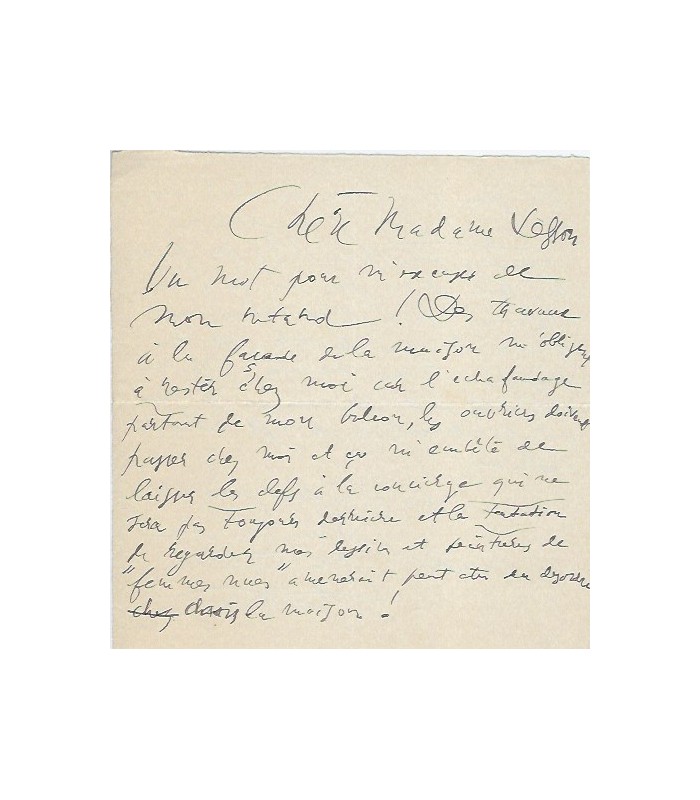 Chère Madame
Un mot pour m'excuser de
mon retard ! Des travaux
à la façade de la maison m'obligent
à rester chez moi car l'echafaudage
partant de mon balcon, les ouvriers doivent
passer chez moi et ça m'embête de
laisser les clefs à la concierge qui ne
sera pas toujours derrière et la tentation
de regarder mes dessins et peintures de
"femmes nues" amenerait peut etre du desordre
chez dans la maison !